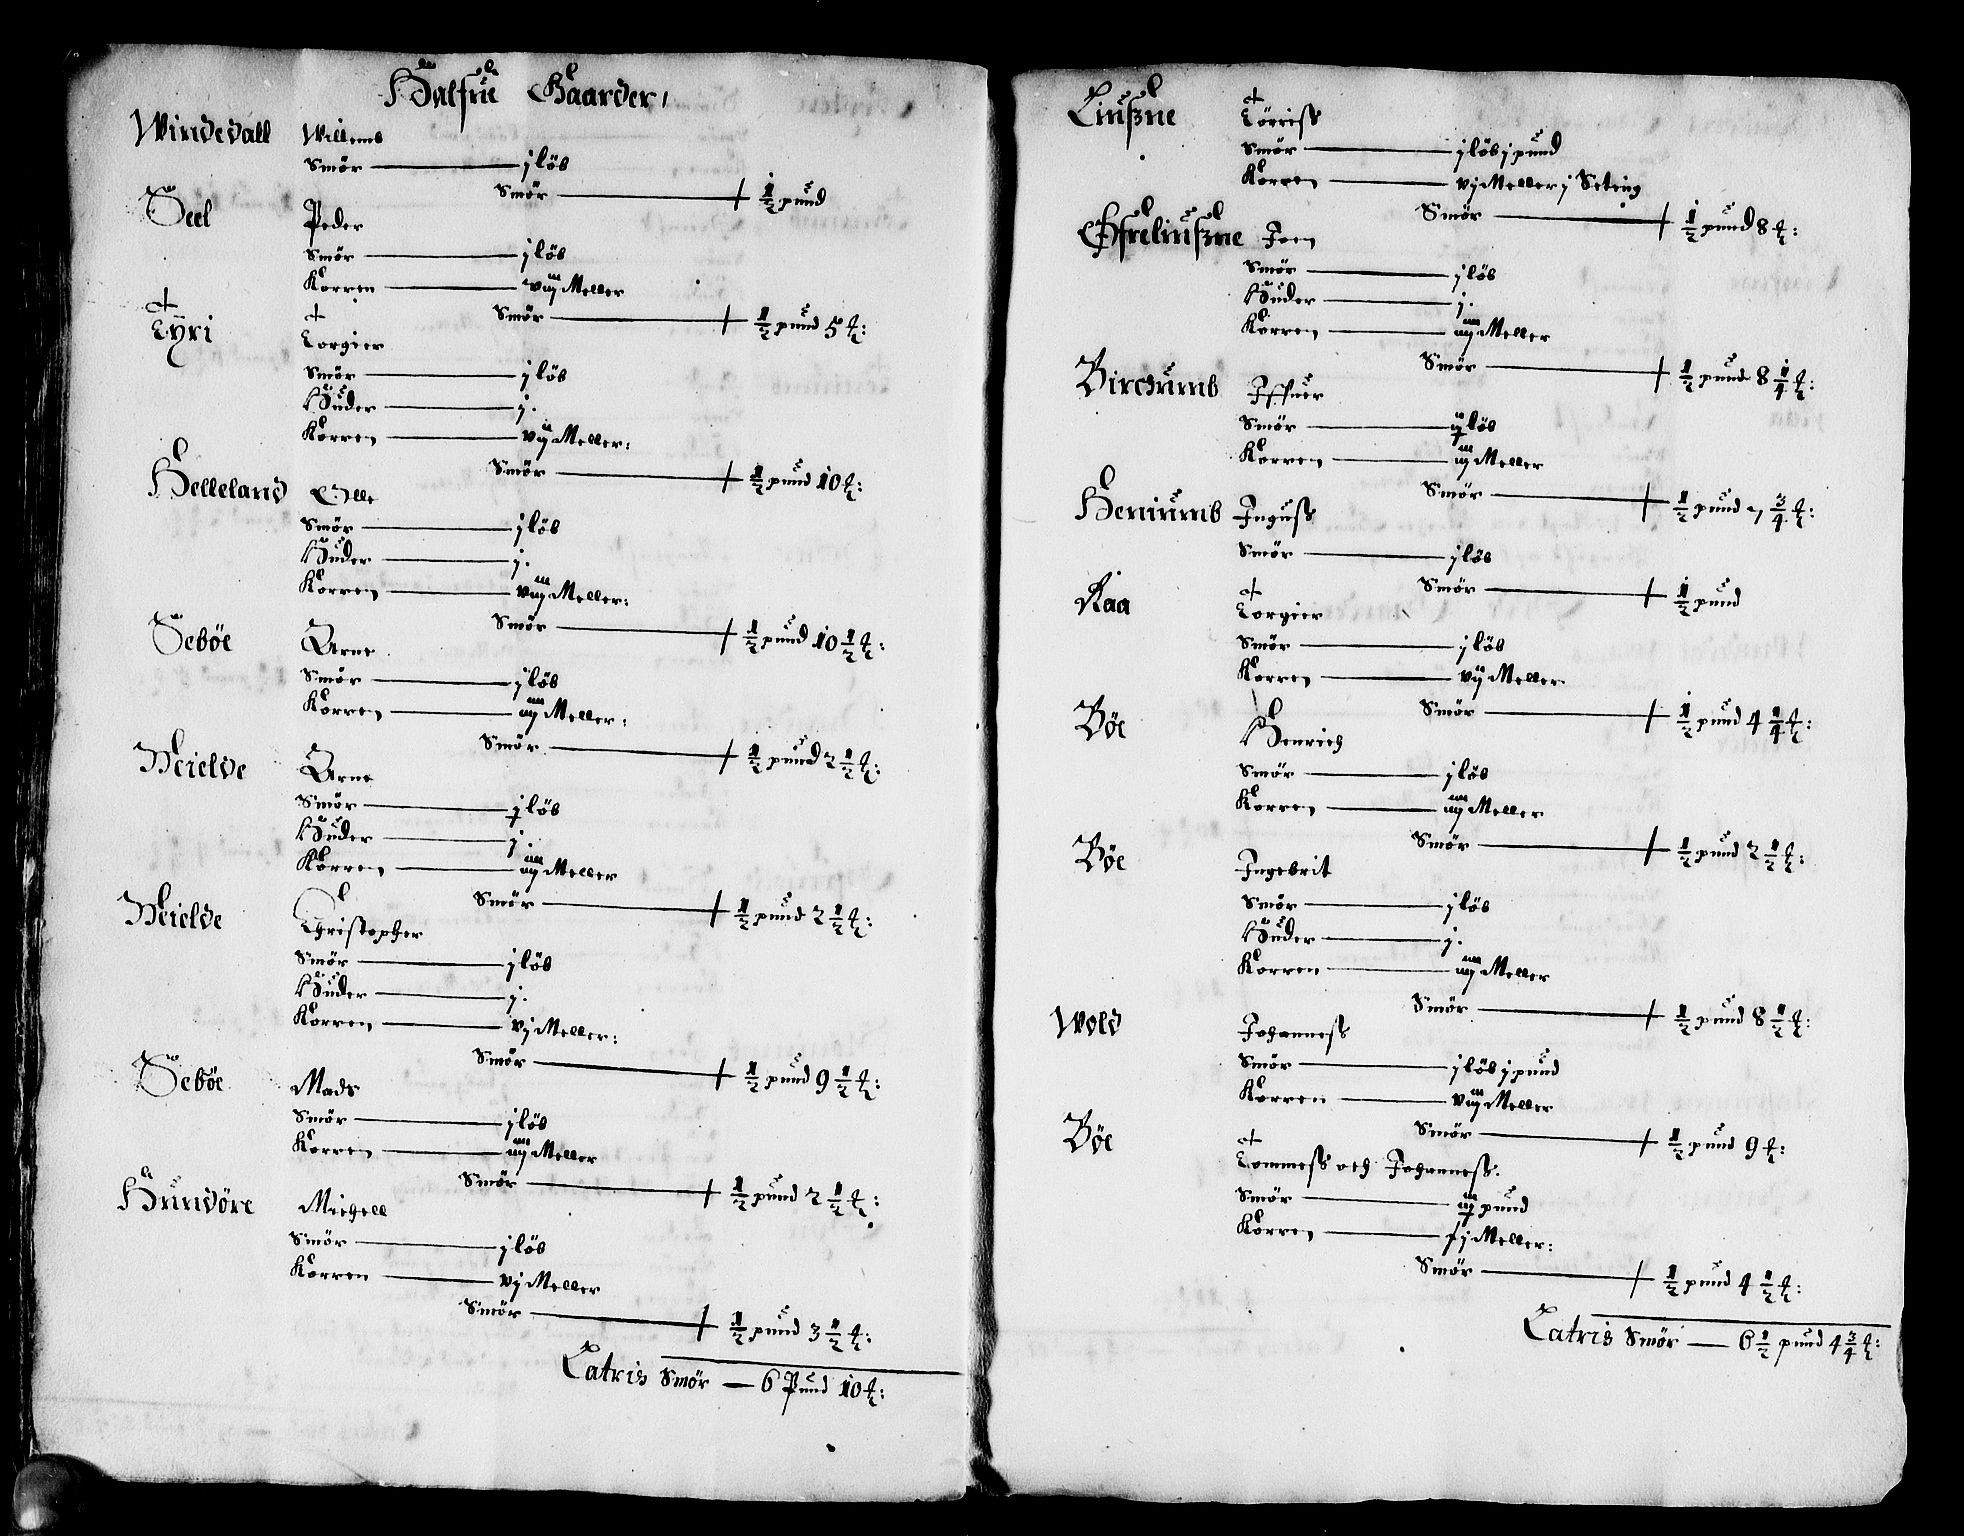 Halfrie Gaarder,
Windevall Willems
Smör — j löb
Smör — ½ pund
Seel Peder
Smör — j löb
Korren — viij Meller
Smör — ½ pund 5 ℔:
Tÿri Torgier
Smör — j löb
Huder — j.
Korren — vij Meller:
Smör — ½ pund 10 ℔:
Helleland Olle
Smör — j löb
Huder — j.
Korren — viij Meller:
Smör — ½ pund 10 ½ ℔:
Seböe Arne
Smör — j löb
Korren — iiij Meller:
Smör — ½ pund 2 ½ ℔:
Meielde Arne
Smör — j löb
Huder — j.
Korren — iiij Meller
Smör — ½ pund 2 ½ ℔:
Meielde Christopher
Smör — j löb
Huder — j.
Korren — vj Meller:
Smör — ½ pund 9 ½ ℔:
Seböe Mads
Smör — j löb
Korren — iiij Meller
Smör — ½ pund 2 ½ ℔:
Hundöre Michell
Smör — j löb
Korren — vj Meller
Smör — ½ pund 3 ½ ℔:
Latris Smör — 6 Pund 10 ℔:
Liuszne Törriss
Smör — j löb j pund
Korren — vj Meller j Seting
Smör — ½ pund 8 ℔:
Öfreliuszne Joen
Smör — j löb
Huder — j.
Korren — iiij Meller
Smör — ½ pund 8 ¼ ℔:
Birchumb Iffuer
Smör — löb
Korren — iiij Meller
Smör — ½ pund 7 ¾ ℔:
Heniumb Inguss
Smör — j löb
Smör — ½ pund
Raa Torgier
Smör — j löb
Korren — vij Meller
Smör — ½ pund 4 ¼ ℔:
Böe Henrich
Smör — j löb
Korren — iiij Meller
Smör — ½ pund 2 ½ ℔:
Böe Ingebrit
Smör — j löb
Huder — j.
Korren — iiij Meller
Smör — ½ pund 8 ½ ℔:
Wold Johanness
Smör — j löb j pund
Korren — viij Meller
Smör — ½ pund 9 ℔:
Böe Tommess och Johanness.
Smör — pund
Korren — Meller:
Smör — ½ pund 4 ½ ℔:
Latris Smör — 6 ½ pund 4 ¾ ℔: